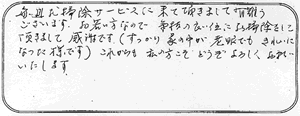 毎週お掃除サービスに来て頂きまして有難う
ございます。お若い方なので事務の良い位にお掃除をして
頂きまして感謝です（すっかり家の中が老眼でもきれいに
なった様です）これからもお二方こそどうぞよろしくお願い
いたします